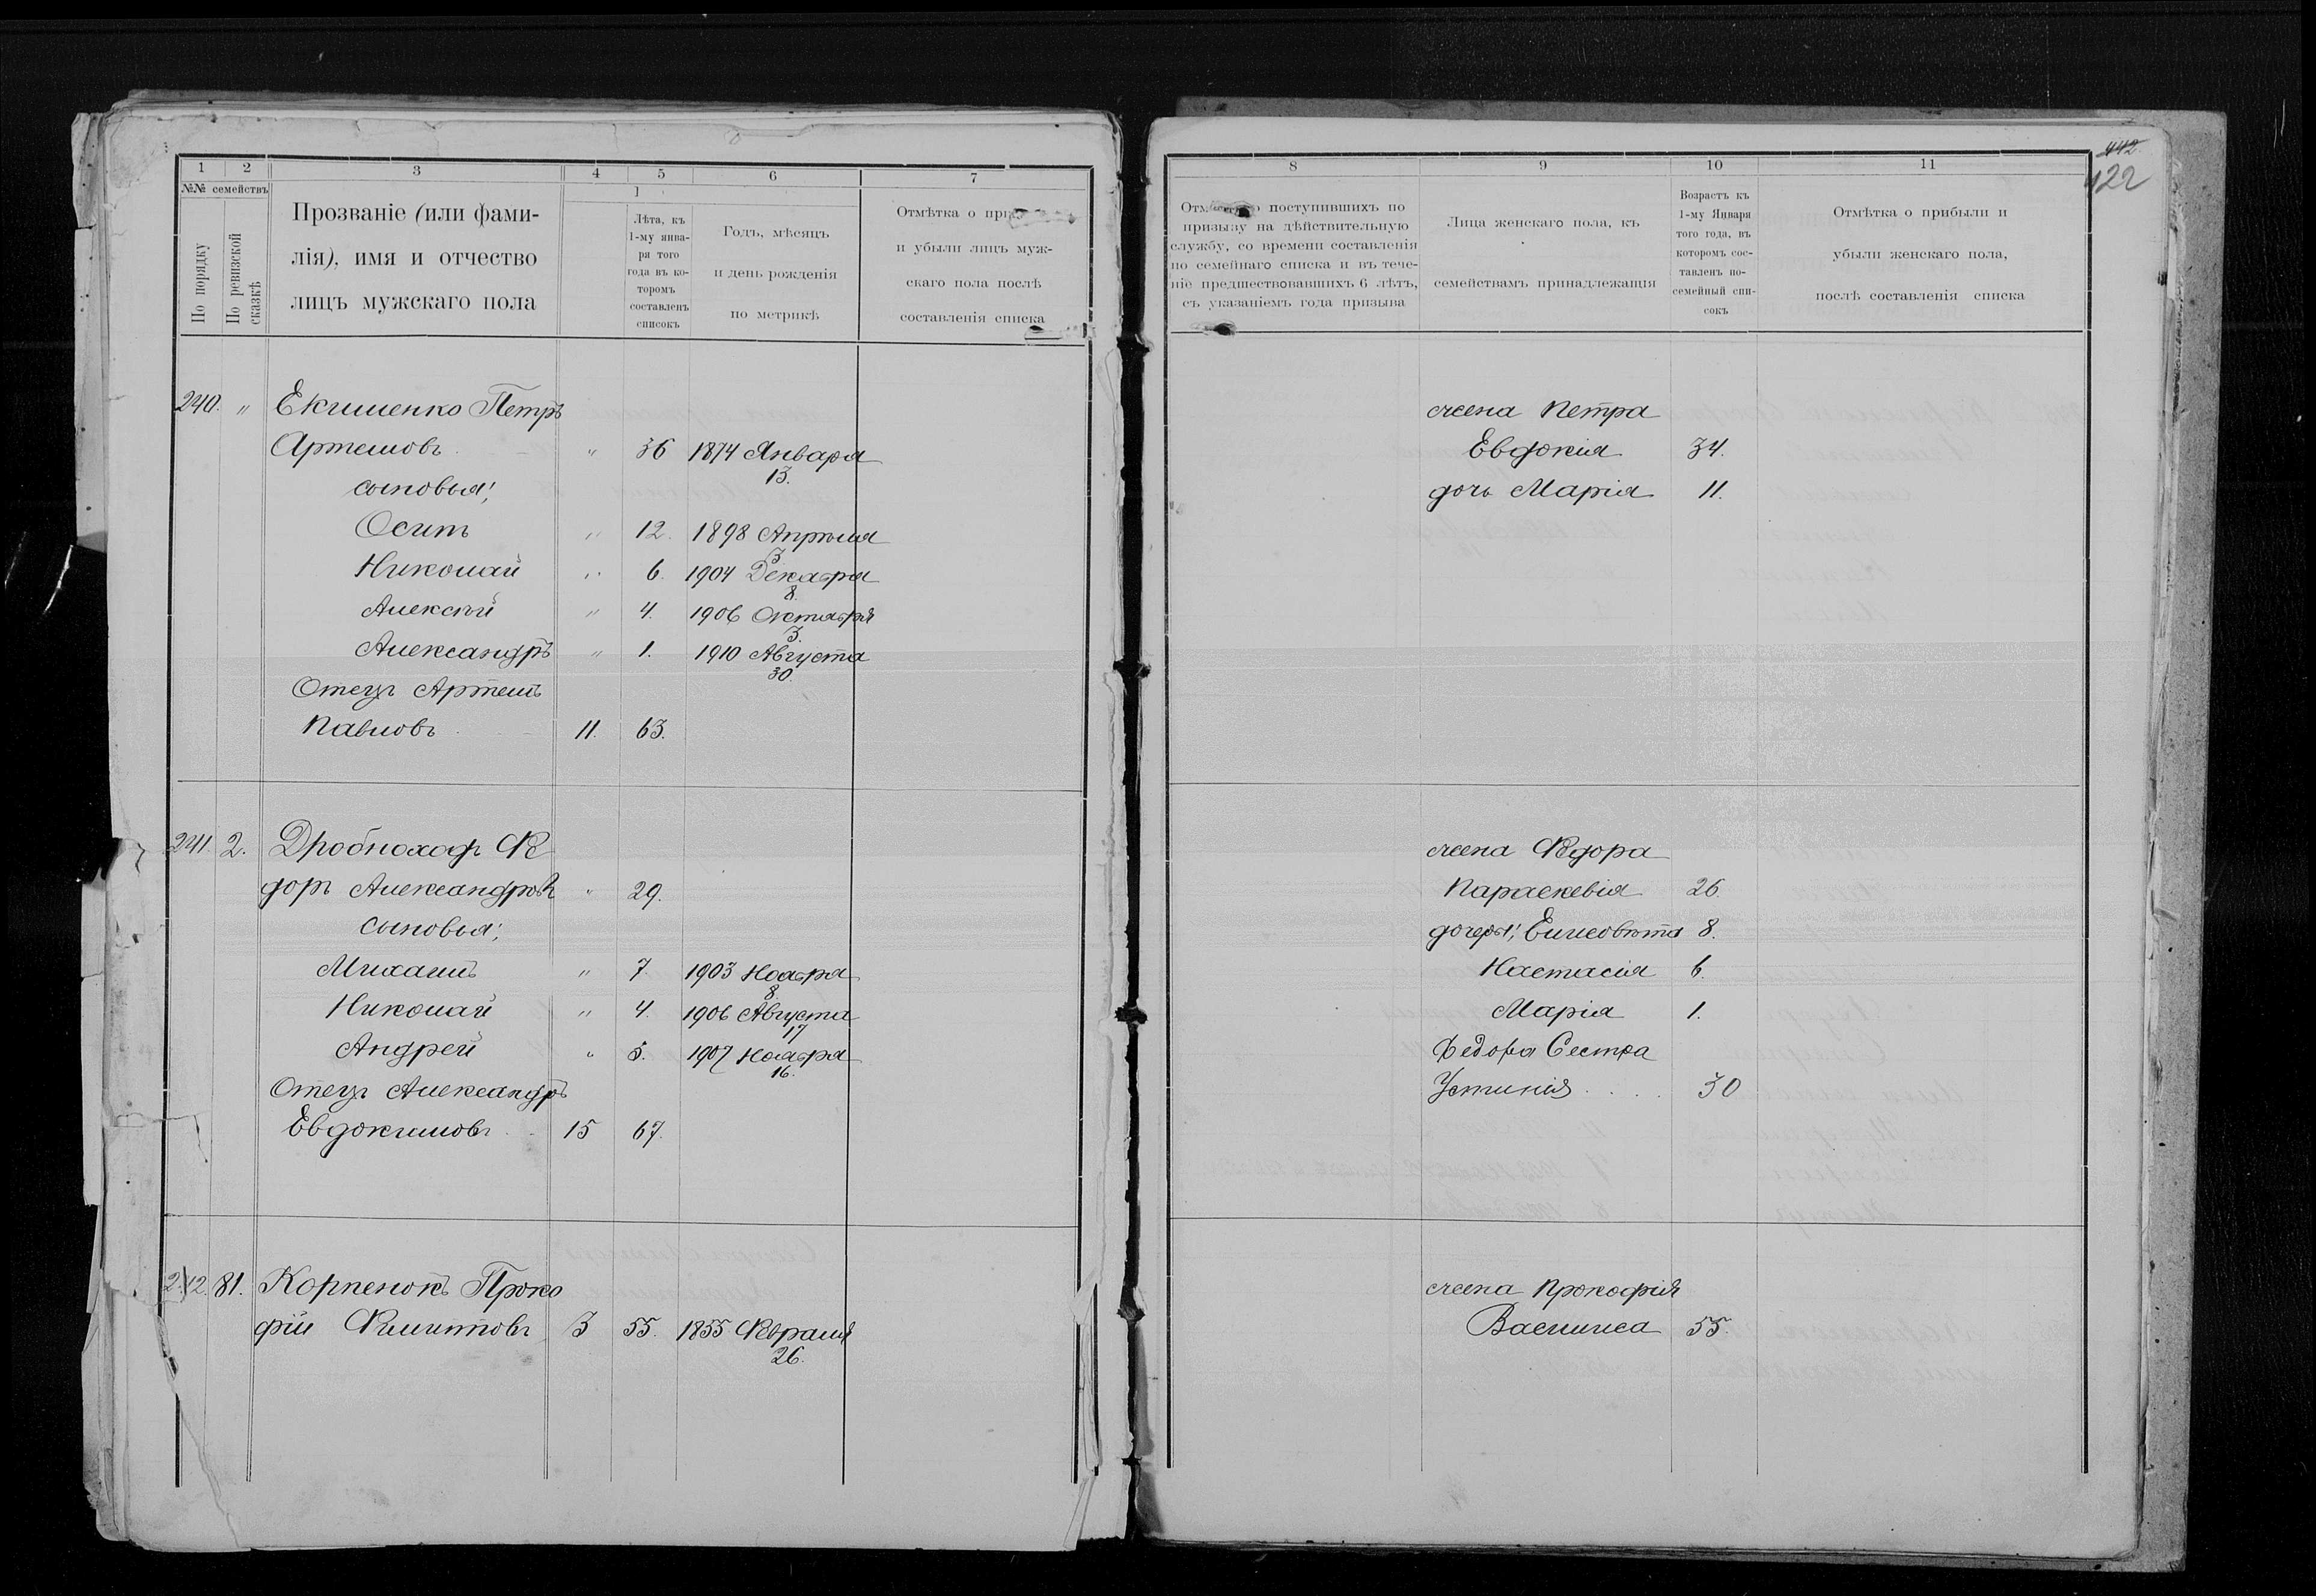 1 2 3 4 5 6 7
№№ семействъ
По порядку
По ревизской сказкѣ
Прозваніе (или фами-
лія), имя и отчество
лицъ мужскаго пола
Лѣта, къ
1-му янва-
ря того
года въ ко-
торомъ
составленъ
списокъ
Годъ, мѣсяцъ
и день рожденія
по метрикѣ
Отмѣтка о
и убыли лицъ муж-
скаго пола послѣ
составленія списка
240. " Екименко Петръ
Артемовъ " 36 1874 Января
13.
сыновья;
Осипъ " 12. 1898 Апрѣля
3
Николай " 6. 1904 Декабря
8.
Алексѣй " 4. 1906 Октября
3.
Александръ " 1. 1910 Августа
30.
Отецъ Артемъ
Павловъ 11. 63.
241. 2. Дробноход Ѳе
доръ Александровъ " 29.
сыновья;
Михаилъ " 7. 1903 Ноября
8.
Николай " 4. 1906 Августа
17
Андрей " 3. 1907 Ноября
16.
Отецъ Александръ
Евдокимовъ 15 67.
242. 81. Корпенокъ Проко
фій Филиповъ 3 55. 1855 Февраля
26.
442.
422
8 9 10 11
поступившихъ по
призыву на дѣйствительную
службу, со времени составленія
по семейнаго списка и въ тече-
ніе предшествовавшихъ 6 лѣтъ,
съ указаніемъ года призыва
Лица женскаго пола, къ
семействамъ принадлежащія
Возрастъ къ
1-му Января
того года, въ
которомъ сос-
тавленъ по-
семейный спи-
сокъ
Отмѣтка о прибыли и
убыли женскаго пола,
послѣ составленія списка
жена Петра
Евдокія 34.
дочь Марія 11.
жена Ѳедора
Параскевія 26.
дочеры; Елисовѣта 8.
Настасія 6.
Марія 1.
Федора Сестра
Устинія 30
жена Прокофія
Василиса 55.